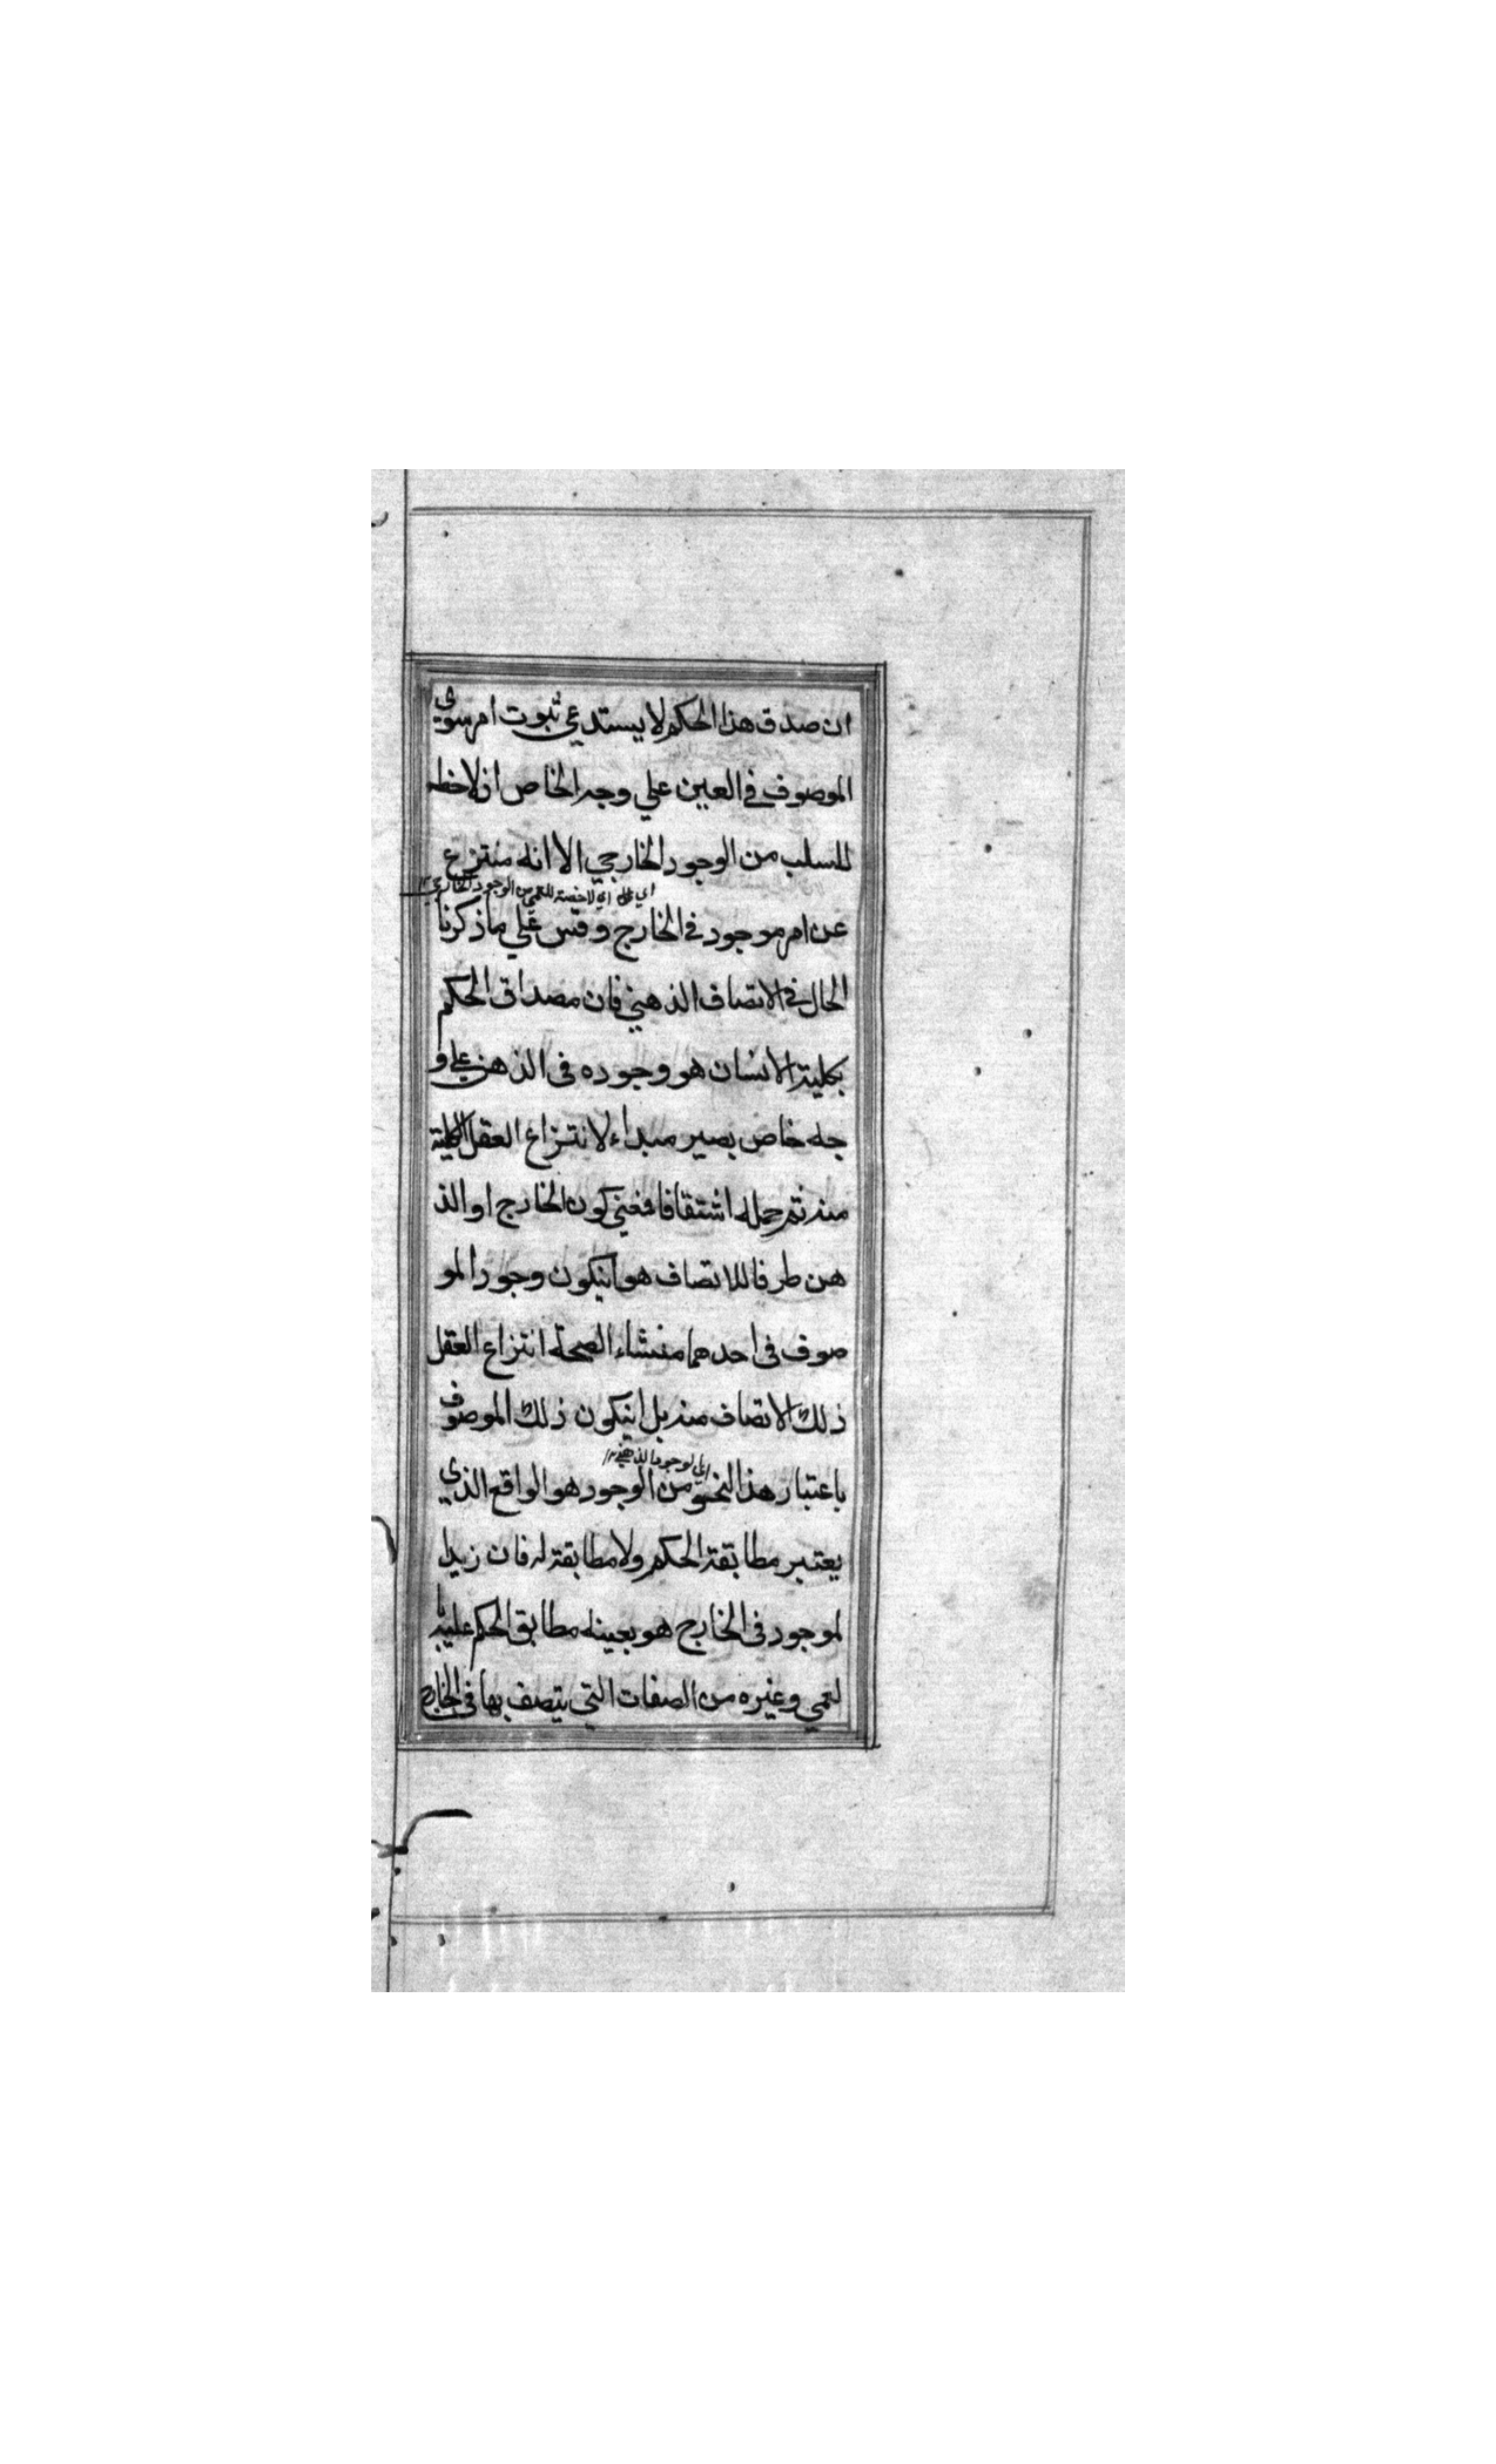 ان صدق هذا الحكم لا يستدعي ثبوت امر سوي
الموصوف في العين علي وجه الخاص اذ لاحظه
للسلب من الوجود الخارجي الا انه منتزع
اي علي اي لا حصة للعمي من الوجود الخارجي ١٢
عن امر موجود في الخارج وقس علي ما ذكرنا
الحال في الاتصاف الذهني فان مصداق الحكم
بكلية الانسان هو وجوده في الذهن علي و
جه خاص يصير مبداء لانتزاع العقل الكلية
منه ثم حمله اشتقاقا فمعني كون الخارج او الذ
هن طرفا للاتصاف هو انيكون وجود المو
صوف في احدهما منشاء الصحة انتزاع العقل
ذلك الاتصاف منه بل انيكون ذلك الموصوف
اي الوجود الذهني ١٢
باعتبار هذا النحو من الوجود هو الواقع الذي
يعتبر مطابقة الحكم ولا مطابقة له فان زيدا
لموجود في الخارج هو بعينه مطابق الحكم عليه با
لعمي وغيره من الصفات التي يتصف بها في الخارج